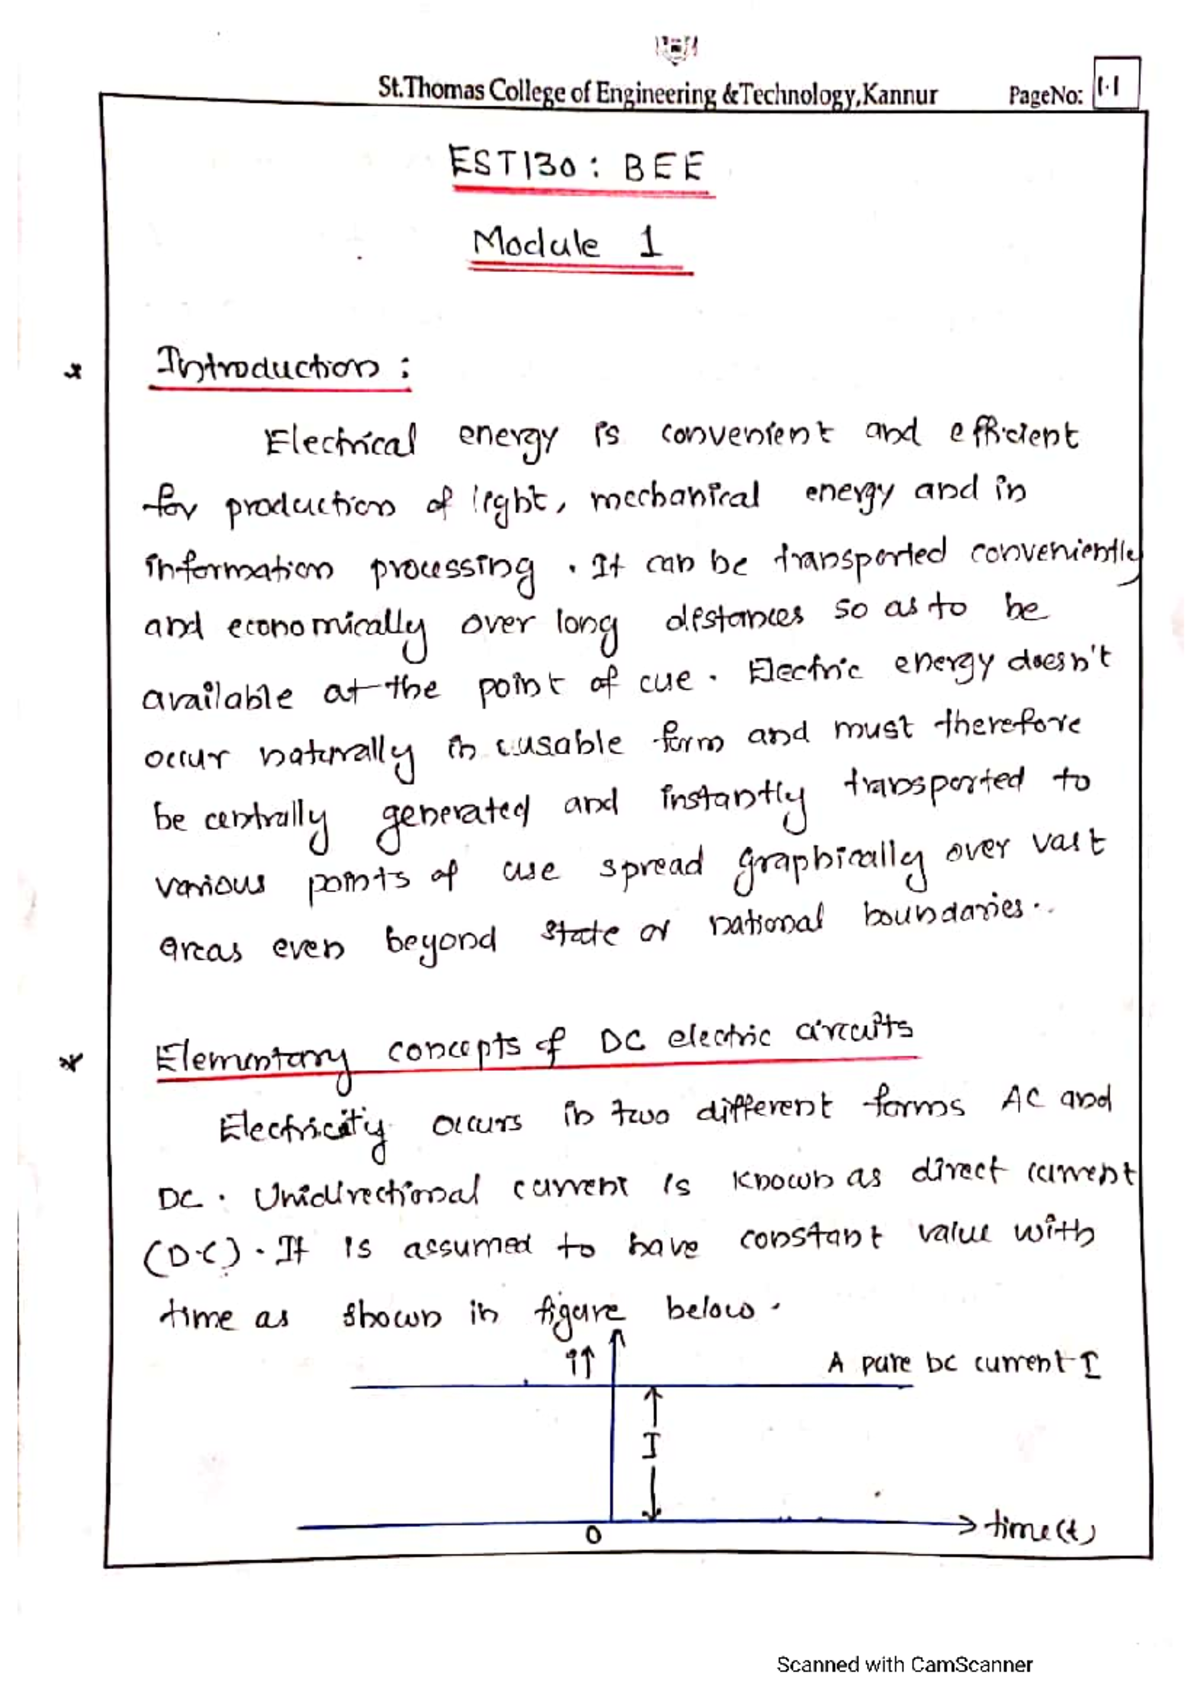 St.Thomas College of Engineering &Technology,Kannur PageNo: 1.1
EST130: BEE
Module 1
* Introduction :
Electrical energy is convenient and efficient
for production of light, mechanical energy and in
information processing . It can be transported conveniently
and economically over long distances so as to be
available at the point of use . Electric energy doesn't
occur naturally in usable form and must therefore
be centrally generated and instantly transported to
various points of use spread graphically over vast
areas even beyond state or national boundaries..
* Elementary concepts of DC electric circuits
Electricity occurs in two different forms AC and
DC . Unidirectional current is known as direct current
(D.C) . It is assumed to have constant value with
time as shown in figure below .
i↑ A pure DC current I
I
0 time(t)
Scanned with CamScanner